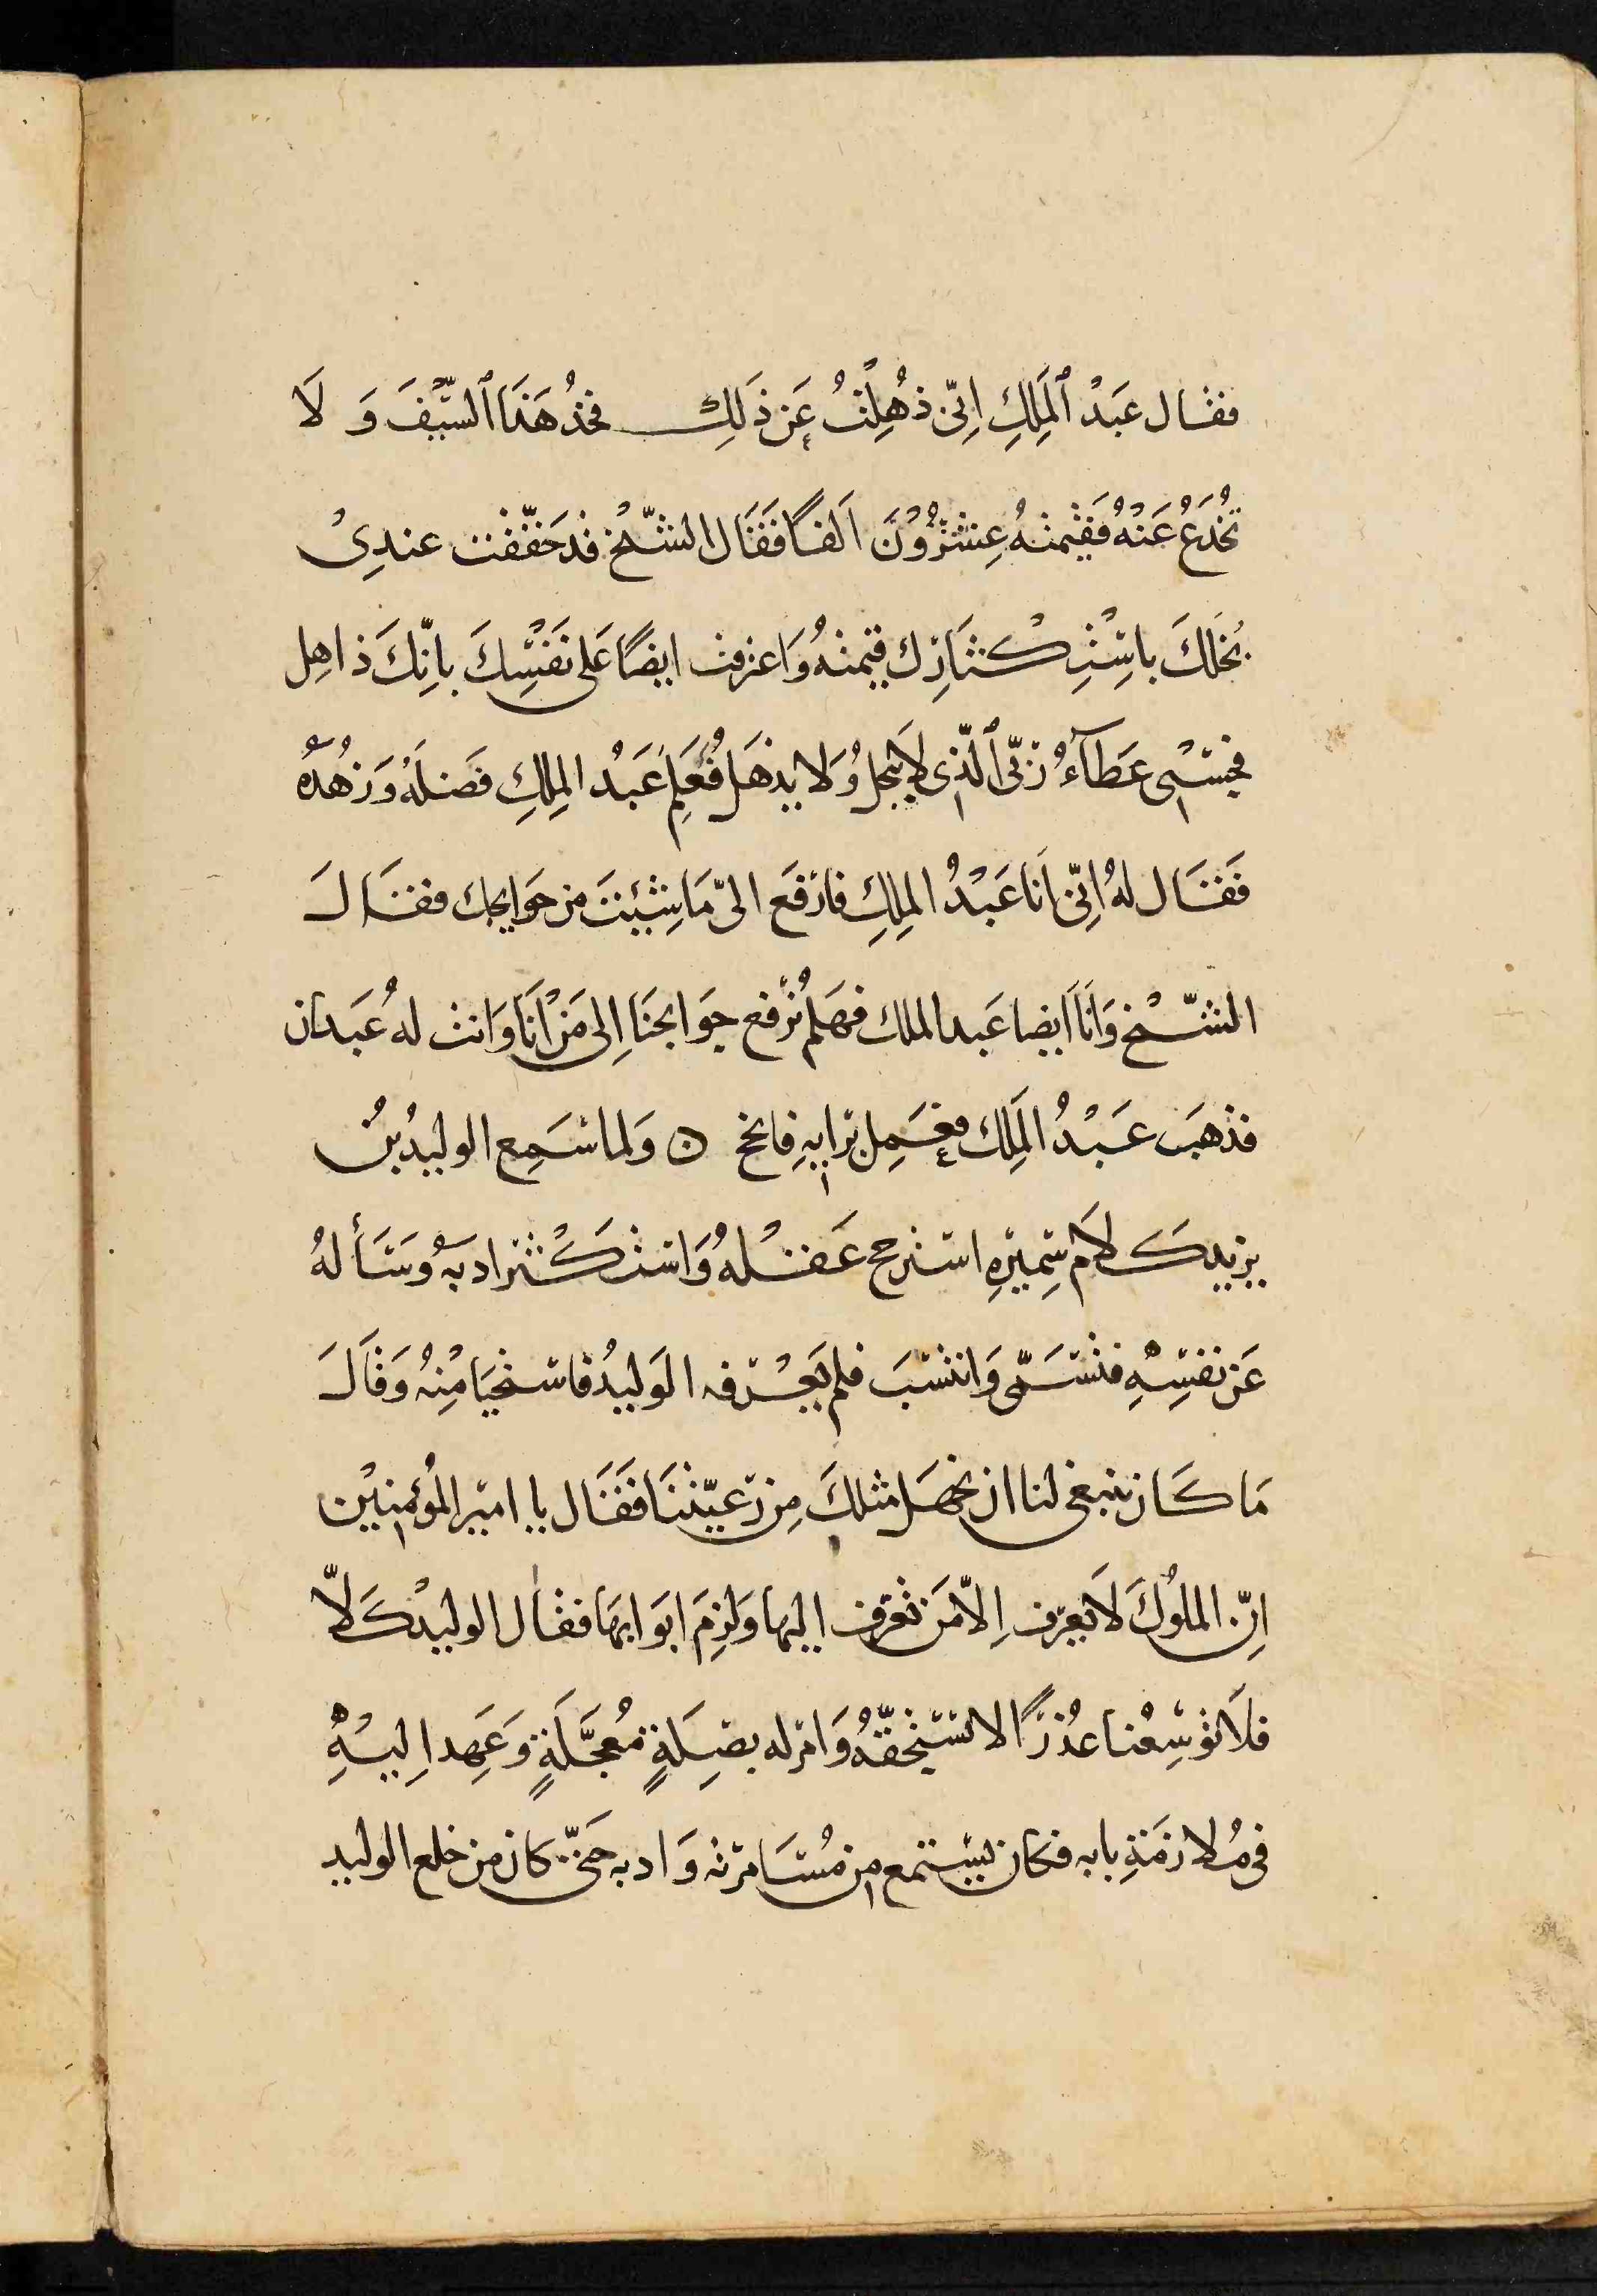 فقال عَبْدُ ٱلمَلِكِ اِنّى ذُهِلْتُ عَن ذَلِك فخُذْ هَذَا ٱلسَّيْفَ وَ لَا
تُخْدَعُ عَنْهُ فَقِيمتهُ عِشْرُوْنَ اَلفًا فَقَال الشّيْخُ قد حَقّقْت عندِىْ
بُخْلكَ باسْتِكْثَارِك قيمتهُ وَاعترفت ايضًا عَلى نَفْسِكَ بانّكَ ذاهِل
فحسْبى عَطآءُ رَبّى ٱلّذِى لَا يبخلُ وَلا يذهَلُ فَعَلِمَ عَبْدُ المِلِكِ فَضلَهُ وَزُهْدَهُ
فَقَال لهُ انّى اَنا عَبْدُ المِلِكِ فارْفَع الىّ مَا شِئتَ من حَوايجك فقَالَ
الشّيْخ وَاَنَا ايضا عَبد الملك فهَلمّ نُرْفع حَوايجنَا اِلى مَنْ اَنَا وَانت لهُ عَبدَان
فذهَب عَبْدُ المَلِك فعَمِل برَايهِ فانجح ه وَلما سَمِع الوليدُ بنُ
يزيد كَلَام سَمِيرِهِ استرجح عَقْلهُ وَاسْتكْثر ادبَهُ وَسَأَلهُ
عَن نفسِهِ فتسَمّى وَانتسَبَ فلم يَعْرفه الوَليدُ فاستحْيَا مِنْهُ وَقَالَ
مَا كَان ينبغى لنا ان نجهَل مثلكَ مِن رَعيّتنَا فَقَال يا امير المُؤمنِيْن
اِنّ الملُوكَ لَا تعرف اِلاّ مَن تعَرّف اليها وَلزِمَ ابَوابهَا فقال الوليدْ كَلاّ
فلَا توْسِعْنا عُذرًا لا نستحقّهُ وَامرَ له بصِلَةٍ مُعجّلَةٍ وَعَهِد اِليْهِ
فى مُلازمَةِ بابه فكان يستمع من مُسَامرته وَادبه حَتّى كان من خلع الوليد